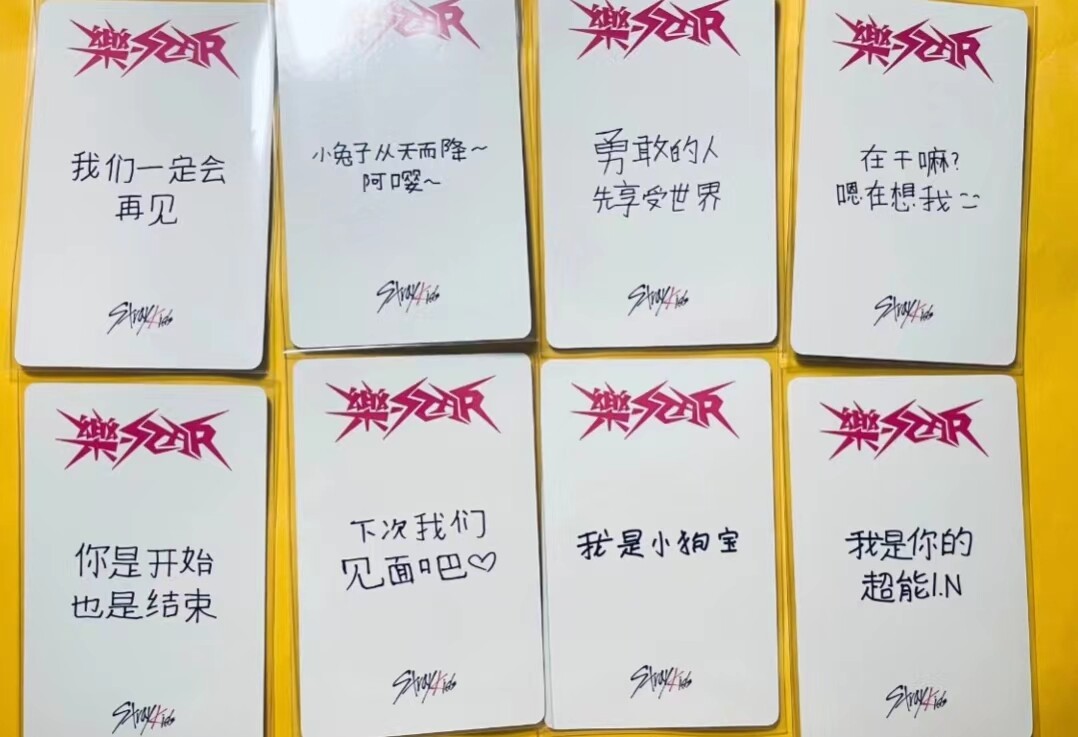 樂-STAR
我们一定会
再见
Stray Kids
樂-STAR
小兔子从天而降~
阿嘤~
Stray Kids
樂-STAR
勇敢的人
先享受世界
Stray Kids
樂-STAR
在干嘛?
嗯在想我
Stray Kids
樂-STAR
你是开始
也是结束
Stray Kids
樂-STAR
下次我们
见面吧♡
Stray Kids
樂-STAR
我是小狗宝
Stray Kids
樂-STAR
我是你的
超能I.N
Stray Kids